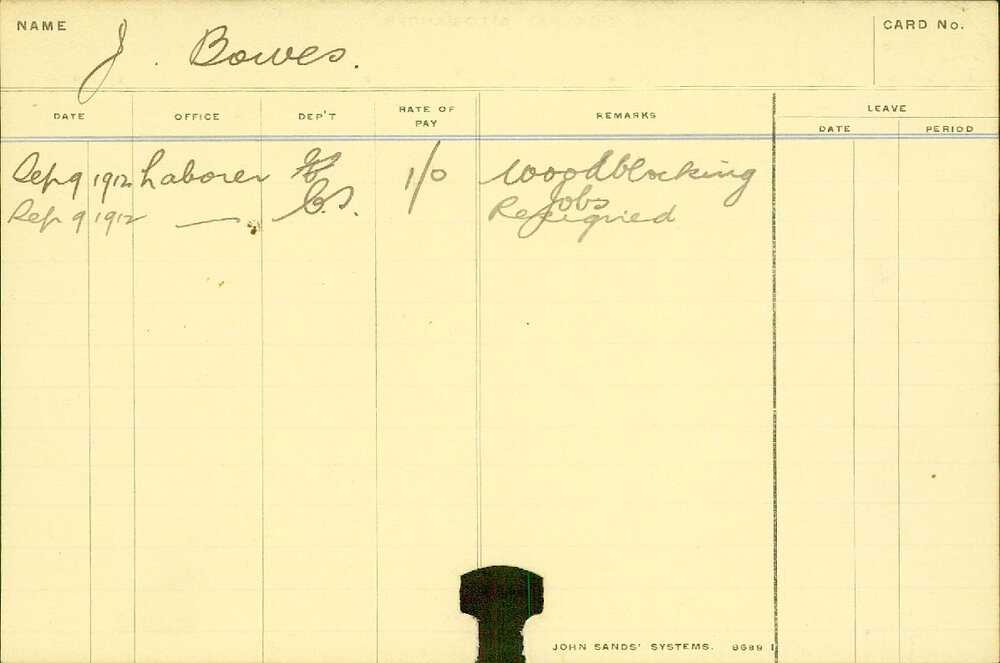 NAME J. Bowes. CARD No.
DATE OFFICE DEP'T RATE OF PAY REMARKS LEAVE
DATE PERIOD
Sep 9 1912 Laborer 1/0 Woodblocking
Jobs
Sep 9 1912 — C.S. Resigned
JOHN SANDS' SYSTEMS. 8689